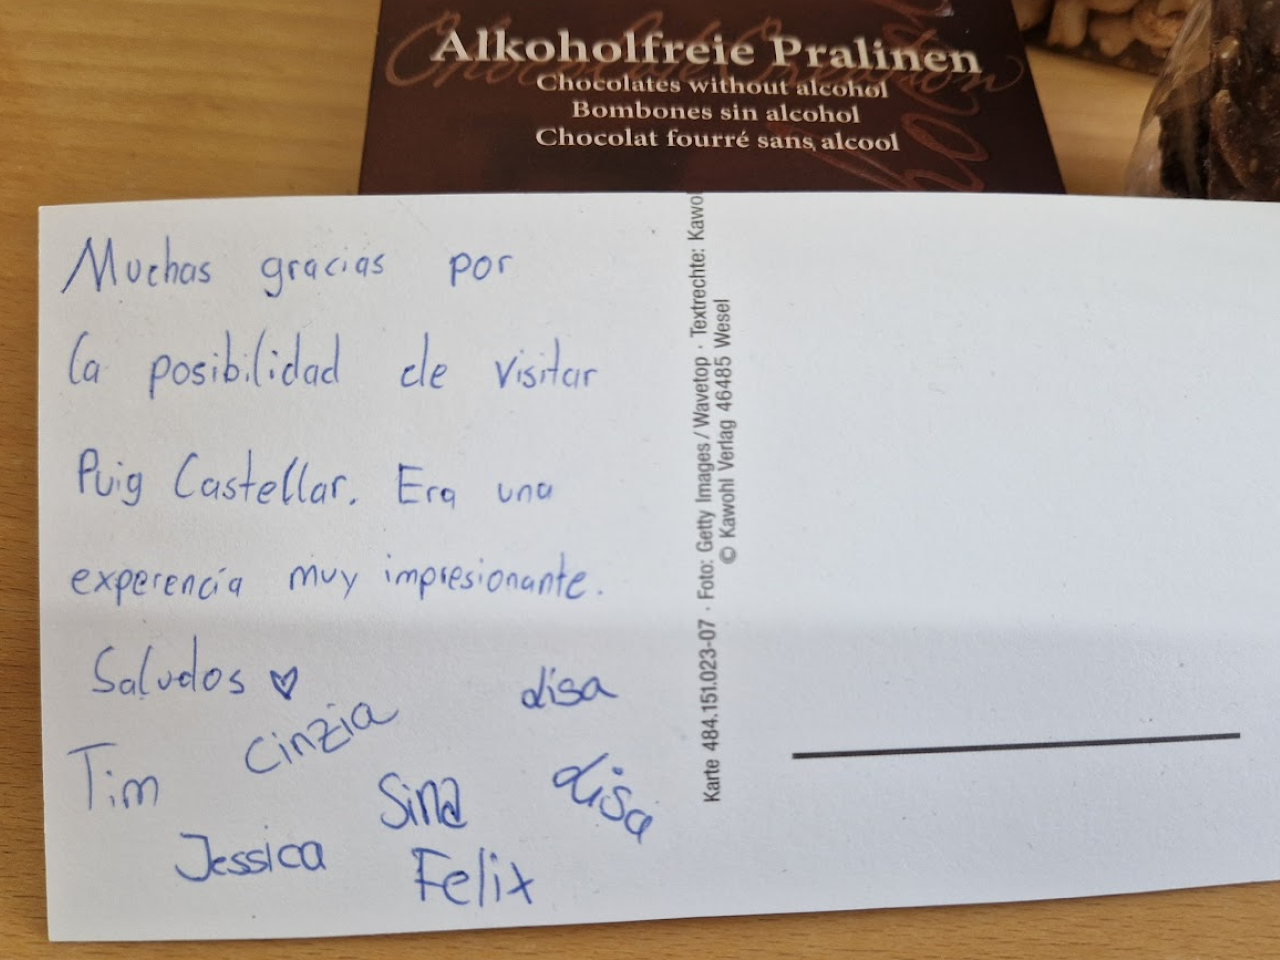 Alkoholfreie Pralinen
Chocolates without alcohol
Bombones sin alcohol
Chocolat fourré sans alcool
Muchas gracias por
la posibilidad de visitar
Puig Castellar. Era una
experencía muy impresionante.
Saludos ♡
Lisa
Cinzia
Tim
Sina
Lisa
Jessica
Felix
Karte 484.151.023-07 · Foto: Getty Images / Wavetop · Textrechte: Kawo
© Kawohl Verlag 46485 Wesel